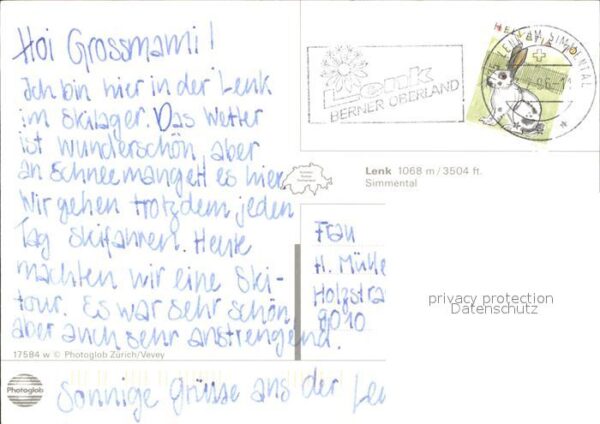 Hoi Grossmami!
Ich bin hier in der Lenk
im Skilager. Das Wetter
ist wunderschön, aber
an Schnee mangelt es hier.
Wir gehen trotzdem jeden
Tag skifahren. Heute
machten wir eine Ski-
tour. Es war sehr schön,
aber auch sehr anstrengend.
Sonnige Grüsse aus der Len
17584 w © Photoglob Zürich/Vevey
Photoglob
Lenk
BERNER OBERLAND
HELVETIA
LENK IM SIMMENTAL
Lenk 1068 m/3504 ft.
Simmental
Frau
H. Mülle
Holzstra
8010
privacy protection
Datenschutz